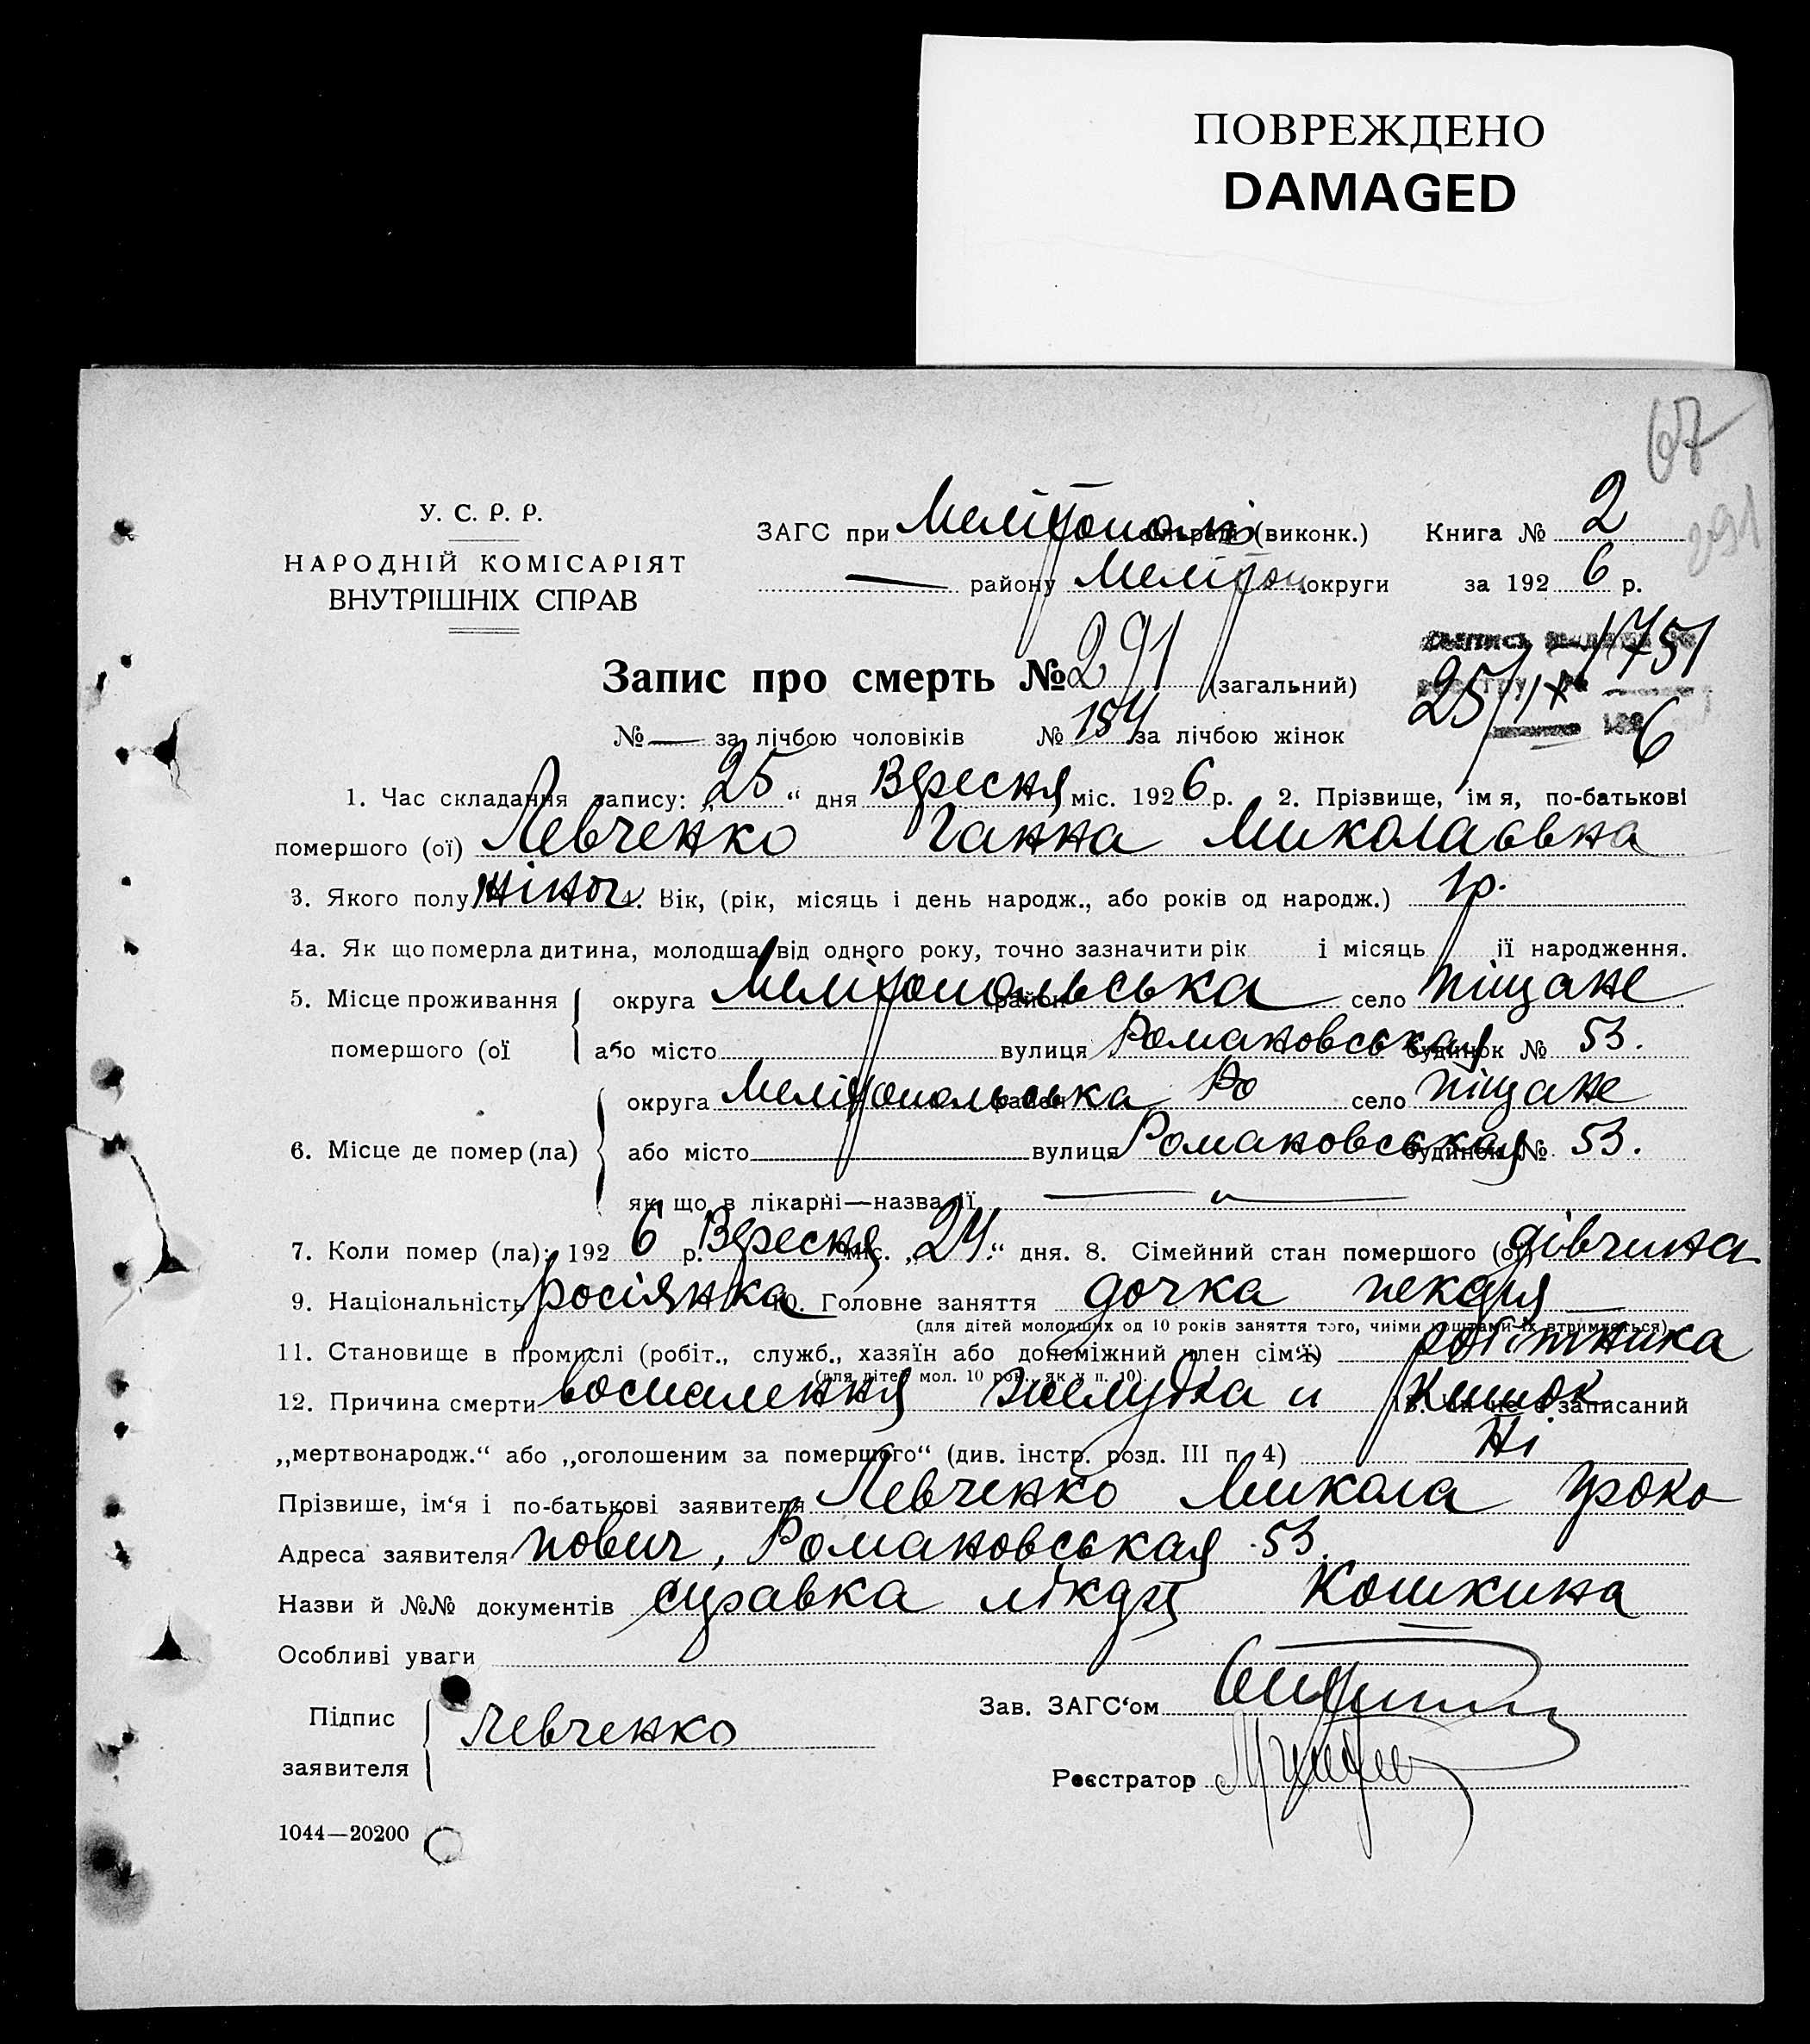 ПОВРЕЖДЕНО
DAMAGED
67
291
У. С. Р. Р.
НАРОДНІЙ КОМІСАРІЯТ
ВНУТРІШНІХ СПРАВ
ЗАГС при Мелітополі (виконк.) Книга № 2
— району Мелітоп. округи за 1926 р.
Запис про смерть № 291 (загальний)
1751
25/IX 6
№ — за лічбою чоловіків № 154 за лічбою жінок
1. Час складання запису: „25“ дня Вересня міс. 1926 р. 2. Прізвище, імя, по-батькові
помершого (ої) Левченко Ганна Миколаєвна
3. Якого полу жіноч. 4. Вік, (рік, місяць і день народж., або років од народж.) 1 р.
4а. Як що померла дитина, молодша від одного року, точно зазначити рік і місяць її народження.
5. Місце проживання помершого (ої округа Мелітопольська район село Піщане
або місто вулиця Романовськая будинок № 53.
6. Місце де помер (ла) округа Мелітопольська район село Піщане
або місто вулиця Романовськая будинок № 53.
як що в лікарні—назва її — „ —
7. Коли помер (ла): 1926 р. Вересня міс. „24.“ дня. 8. Сімейний стан помершого (ої) дівчина
9. Національність росіянка 10. Головне заняття дочка пекаря —
(для дітей молодших од 10 років заняття того, чиїми коштами їх втримується)
11. Становище в промислі (робіт., служб., хазяїн або допоміжний член сім‘ї) робітника
(для дітей мол. 10 рок., як у п. 10).
12. Причина смерти воспалення желудка и кишок 13. Чи не є записаний
„мертвонародж.“ або „оголошеним за помершого“ (див. інстр. розд. III п. 4) Ні
Прізвише, ім‘я і по-батькові заявителя Левченко Микола Проко
Адреса заявителя пович, Романовськая 53.
Назви й №№ документів справка лікаря Кошкина
Особливі уваги
Підпис заявителя Левченко
Зав. ЗАГС‘ом
Реєстратор
1044—20200